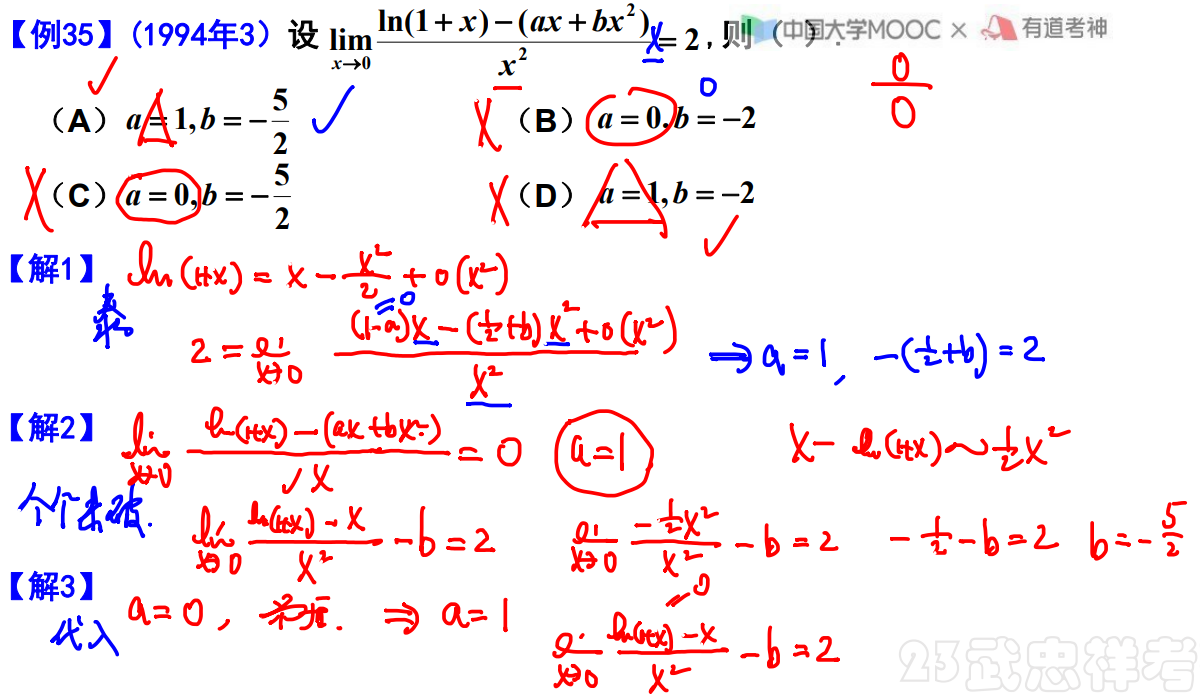 【例35】(1994年3) 设 lim x→0 [ln(1+x)−(ax+bx²)]/x² = 2, 则 ( ). x 中国大学MOOC × 有道考神
0/0
(A) a=1, b=−5/2 (B) a=0, b=−2 0
(C) a=0, b=−5/2 (D) a=1, b=−2
【解1】 ln(1+x) = x − x²/2 + o(x²)
泰勒
2 = lim x→0 [(1−a)x − (1/2+b)x² + o(x²)]/x² ⇒ a=1, −(1/2+b)=2
=0
【解2】 lim x→0 [ln(1+x)−(ax+bx²)]/x = 0 a=1 x−ln(1+x) ~ 1/2 x²
个个击破.
lim x→0 [ln(1+x)−x]/x² − b = 2 lim x→0 [−1/2 x²]/x² − b = 2 −1/2−b=2 b=−5/2
【解3】 a=0, ⇒ a=1
代入
lim x→0 [ln(1+x)−x]/x² − b = 2
=0
23武忠祥考